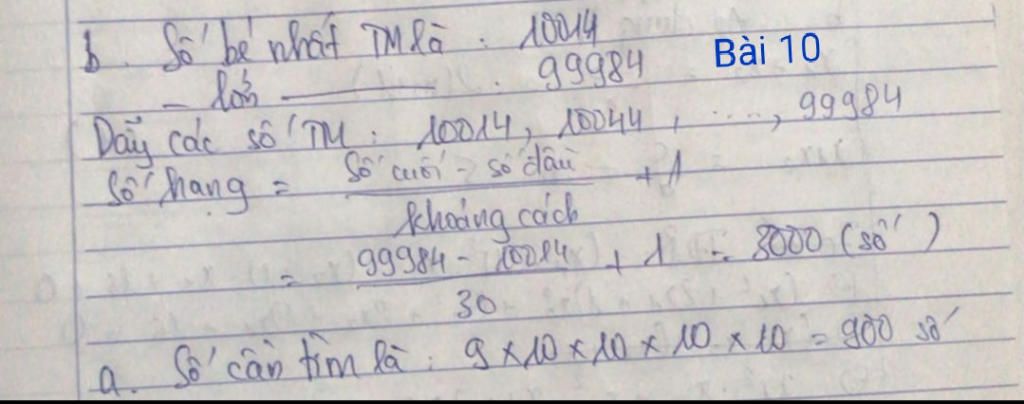 b. Số bé nhất TM là : 10014
Bài 10
- lớn ——— : 99984
Dãy các số TM : 10014, 10044, ...., 99984
Số hạng = Số cuối - số đầu + 1
khoảng cách
= 99984 - 10014 + 1 = 3000 (số)
30
a. Số cần tìm là : 9 x 10 x 10 x 10 x 10 = 900 số